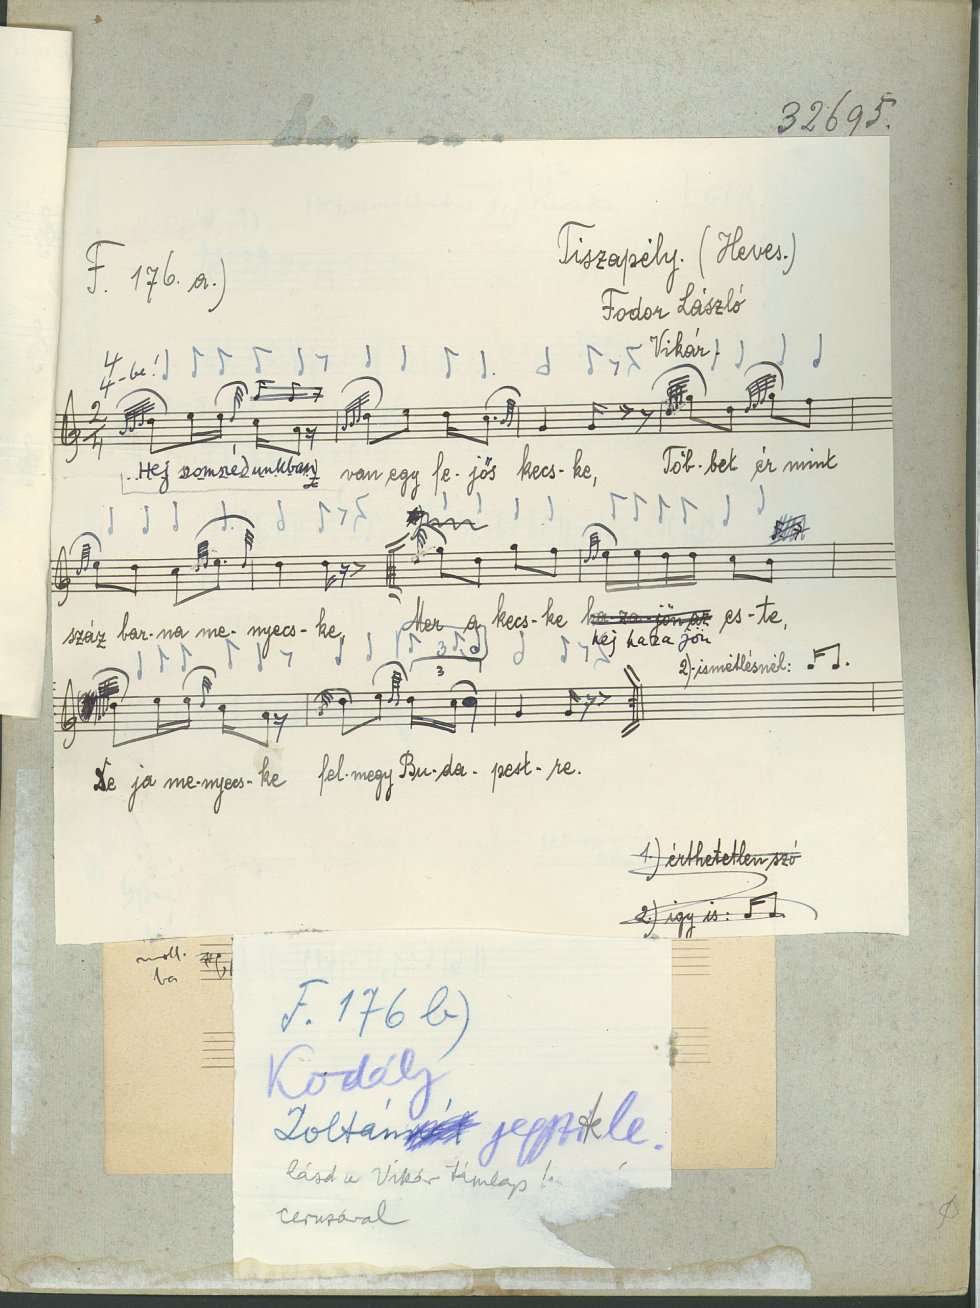 32695.
F. 176. a.)
Tiszapély. (Heves.)
Fodor László
Vikár.
4/4-be!
2/4
Hej szomszédunkban van egy fe-jős kecs-ke, Töb-bet ér mint
száz bar-na me-nyecs-ke, Mer a kecs-ke ha za jön az es-te,
hej haza jön
2) ismétlésnél:
3
3
De ja me-nyecs-ke fel-megy Bu-da-pest-re.
1.) érthetetlen szó
2.) így is:
moll.
ba
F. 176 b)
Kodály
Zoltán jegyzete.
lásd a Vikár támlap
ceruzával